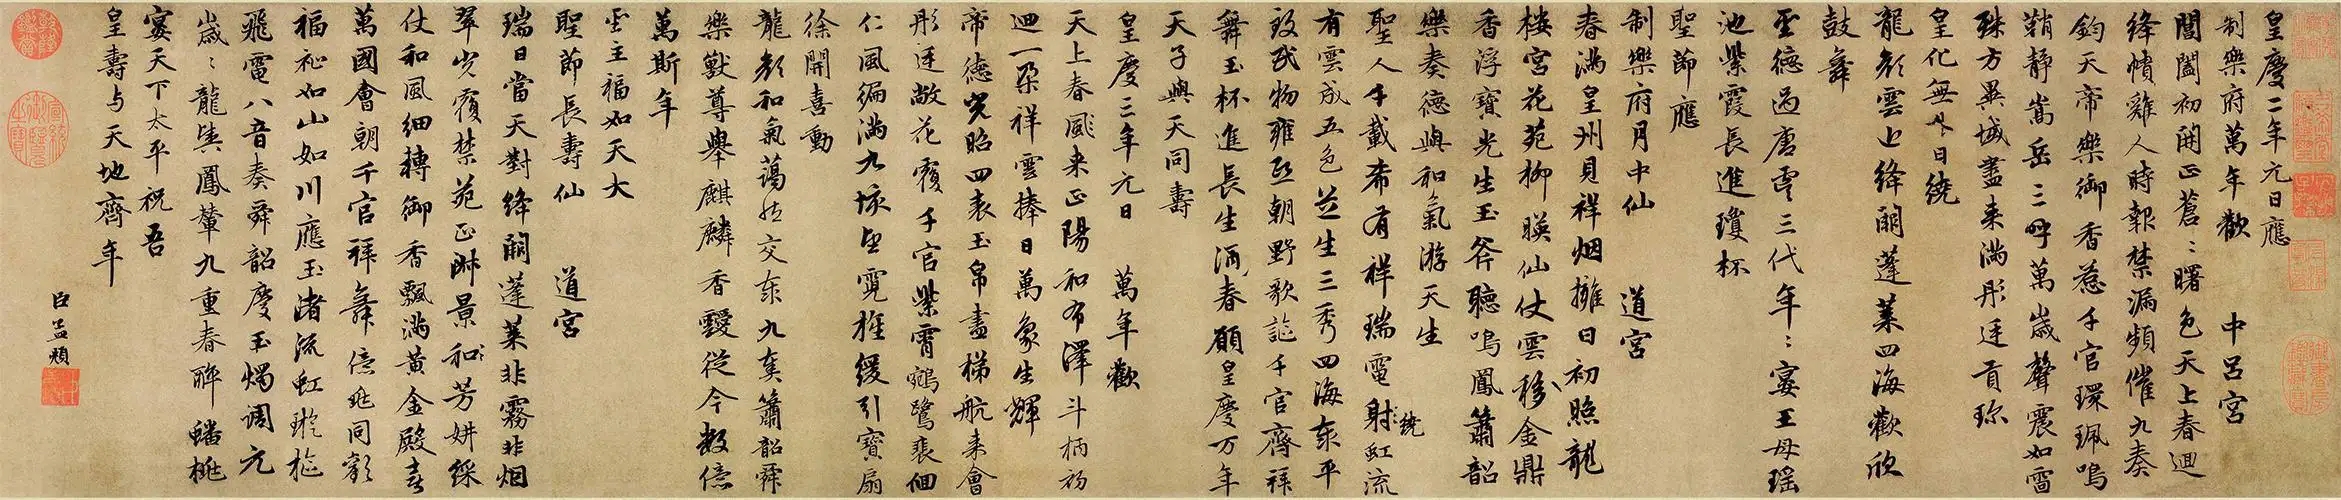 皇慶二年元日應
制樂府萬年歡　中呂宮
閶闔初開正蒼蒼曙色天上春迴
絳幘雞人時報禁漏頻催九奏
鈞天帝樂御香惹千官環珮鳴
鞘靜嵩岳三呼萬歲聲震如雷
殊方異域盡来滿彤廷貢珎
皇化無外日繞
龍顏雲上絳闕蓬萊四海歡欣
鼓舞
聖德過唐虞三代年年宴王母瑶
池紫霞長進瓊杯
聖節應
制樂府月中仙　道宮
春滿皇州見祥烟擁日初照龍
楼宮花苑柳暎仙仗雲移金鼎
香浮寶光生玉斧聽鳴鳳簫韶
樂奏德與和氣游天生
聖人千載希有祥瑞電射虹流
繞
有雲成五色芝生三秀四海泰平
致民物雍熙朝野歌謳千官齊拜
舞玉杯進長生酒春願皇慶万年
天子與天同壽
皇慶三年元日　萬年歡
天上春来正陽和布澤斗柄初
迴一朶祥雲捧日萬象生輝
帝德光昭四表玉帛盡梯航来會
彤廷敞花覆千官紫霄鵷鷺裴佪
仁風徧滿九垓望霓旌緩引寶扇
徐開喜動
龍顏和氣藹然交泰九奏簫韶舜
樂獸尊舉麒麟香靉從今數億
萬斯年
聖主福如天大
聖節長壽仙　道宮
瑞日當天對絳闕蓬萊非霧非烟
翠光覆禁苑正淑景和芳妍綵
仗和風細轉御香飄滿黃金殿喜
萬國會朝千官拜舞億兆同歡
福祉如山如川應玉渚流虹璇樞
飛電八音奏舜韶慶玉燭調元
歲歲龍輿鳳輦九重春醉蟠桃
宴天下太平祝吾
皇壽与天地齊年
臣孟頫